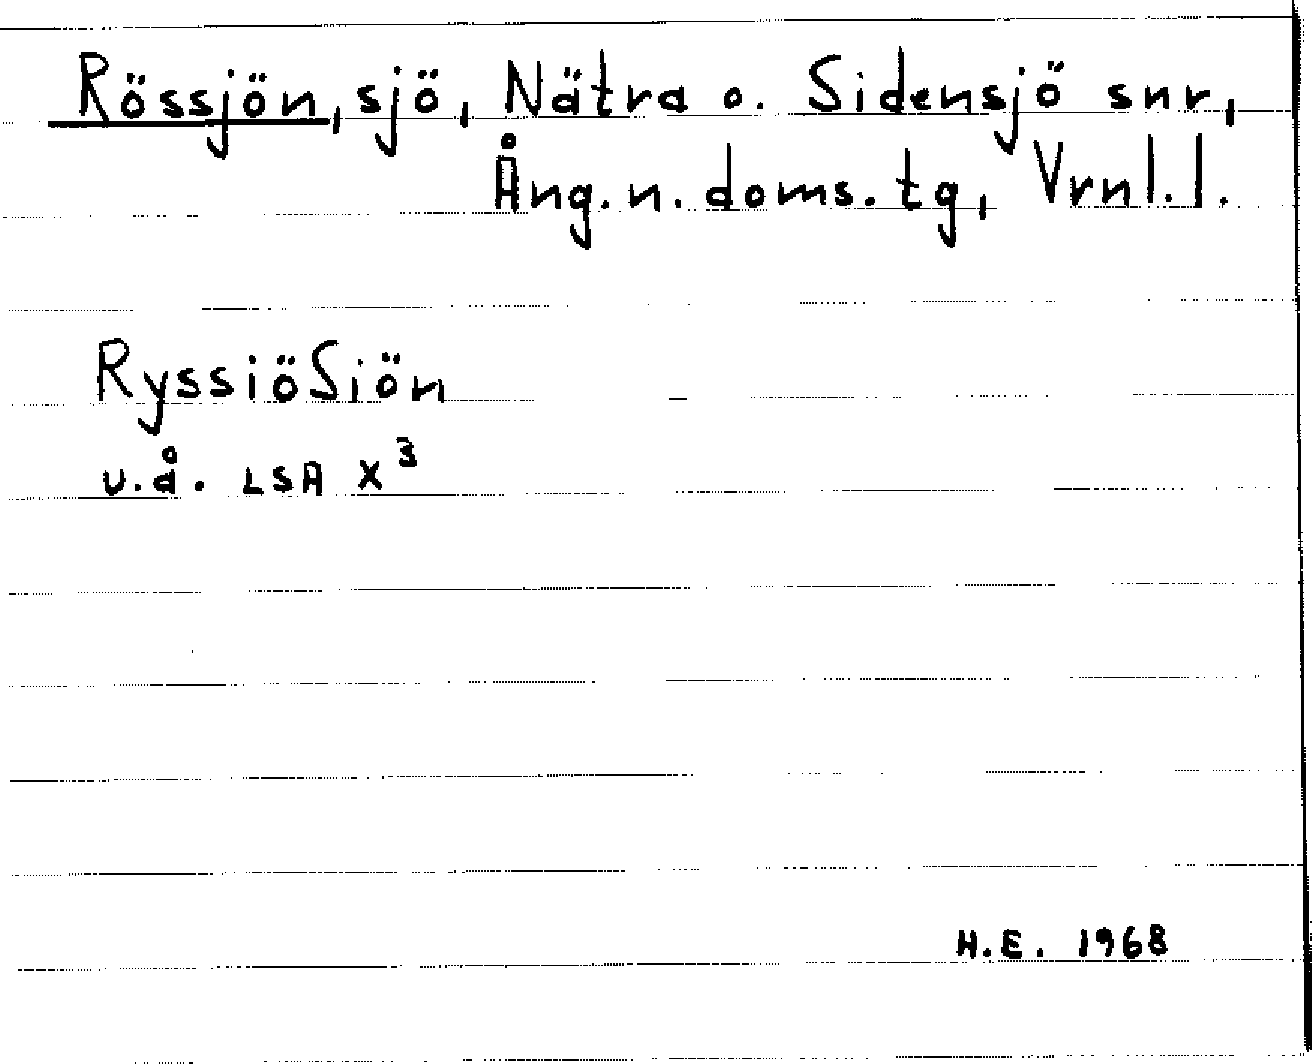 Rössjön, sjö, Nätra o. Sidensjö snr,
Ång. n. doms. tg, Vrnl. l.
RyssiöSiön
u.å. LSA X³
H.E. 1968